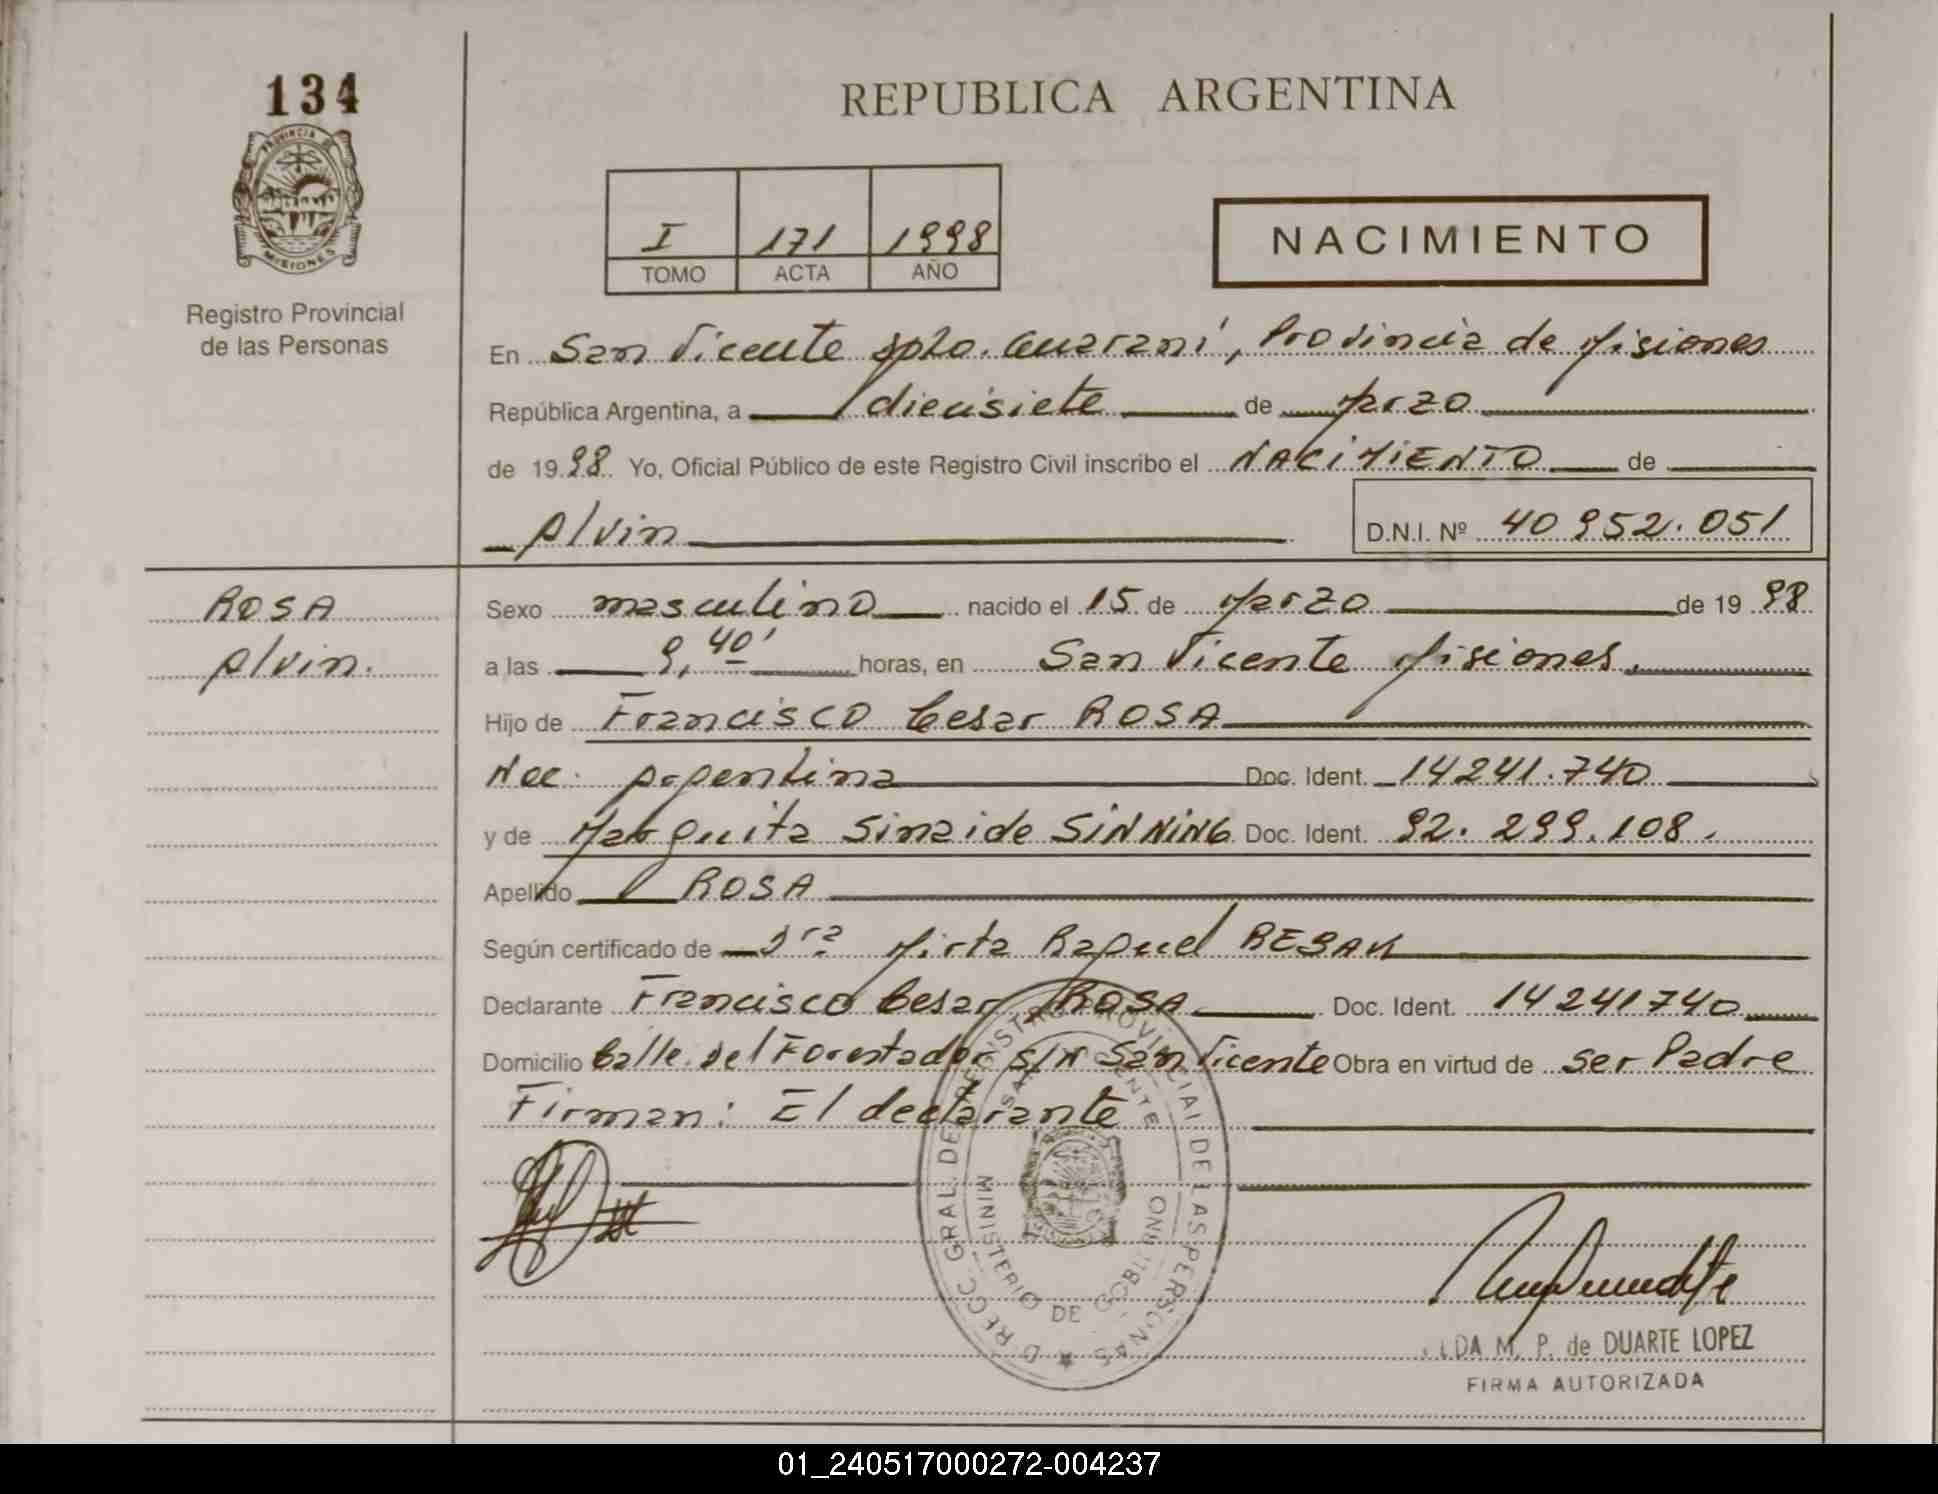 134
PROVINCIA DE
MISIONES
Registro Provincial
de las Personas
REPUBLICA ARGENTINA
I 171 1998
TOMO ACTA AÑO
NACIMIENTO
En San Vicente Dpto. Guaraní, Provincia de Misiones
República Argentina, a diecisiete de Marzo
de 1998 Yo, Oficial Público de este Registro Civil inscribo el NACIMIENTO de
Alvin D.N.I. Nº 40 952.051
ROSA
Alvin.
Sexo masculino nacido el 15 de Marzo de 1998
a las 9,40' horas, en San Vicente Misiones.
Hijo de Francisco Cesar ROSA
Nac. Argentina Doc. Ident. 14241.740
y de Marguita Sinaide SINNING Doc. Ident. 92.299.108.
Apellido ROSA
Según certificado de Dra Mirta Raquel
Declarante Francisco Cesar ROSA Doc. Ident. 14241740
Domicilio Calle del Forestador S/N San Vicente Obra en virtud de ser Padre
Firman: El declarante
D REGC GRAL. DEL REGISTRO PROVINCIAL DE LAS PERSONAS
SAN VICENTE
MINISTERIO DE GOBIERNO
M. P. de DUARTE LOPEZ
FIRMA AUTORIZADA
01_240517000272-004237